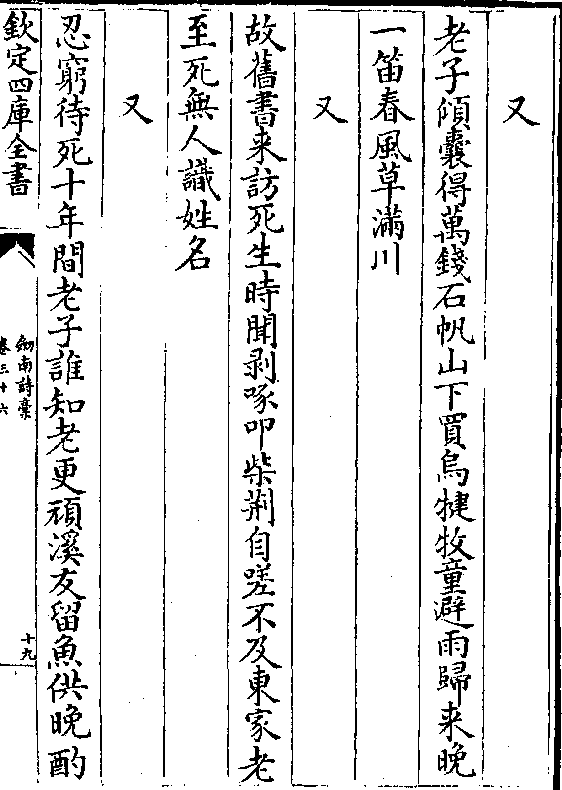 又
老子傾囊得萬錢石帆山下買烏犍牧童避雨歸来晚
一笛春風草滿川
又
故舊書来訪死生時聞剥啄叩柴荆自嗟不及東家老
至死無人識姓名
又
忍窮待死十年間老子誰知老更頑溪友留魚供晚酌
欽定四庫全書
劒南詩藁
卷三十六
十九